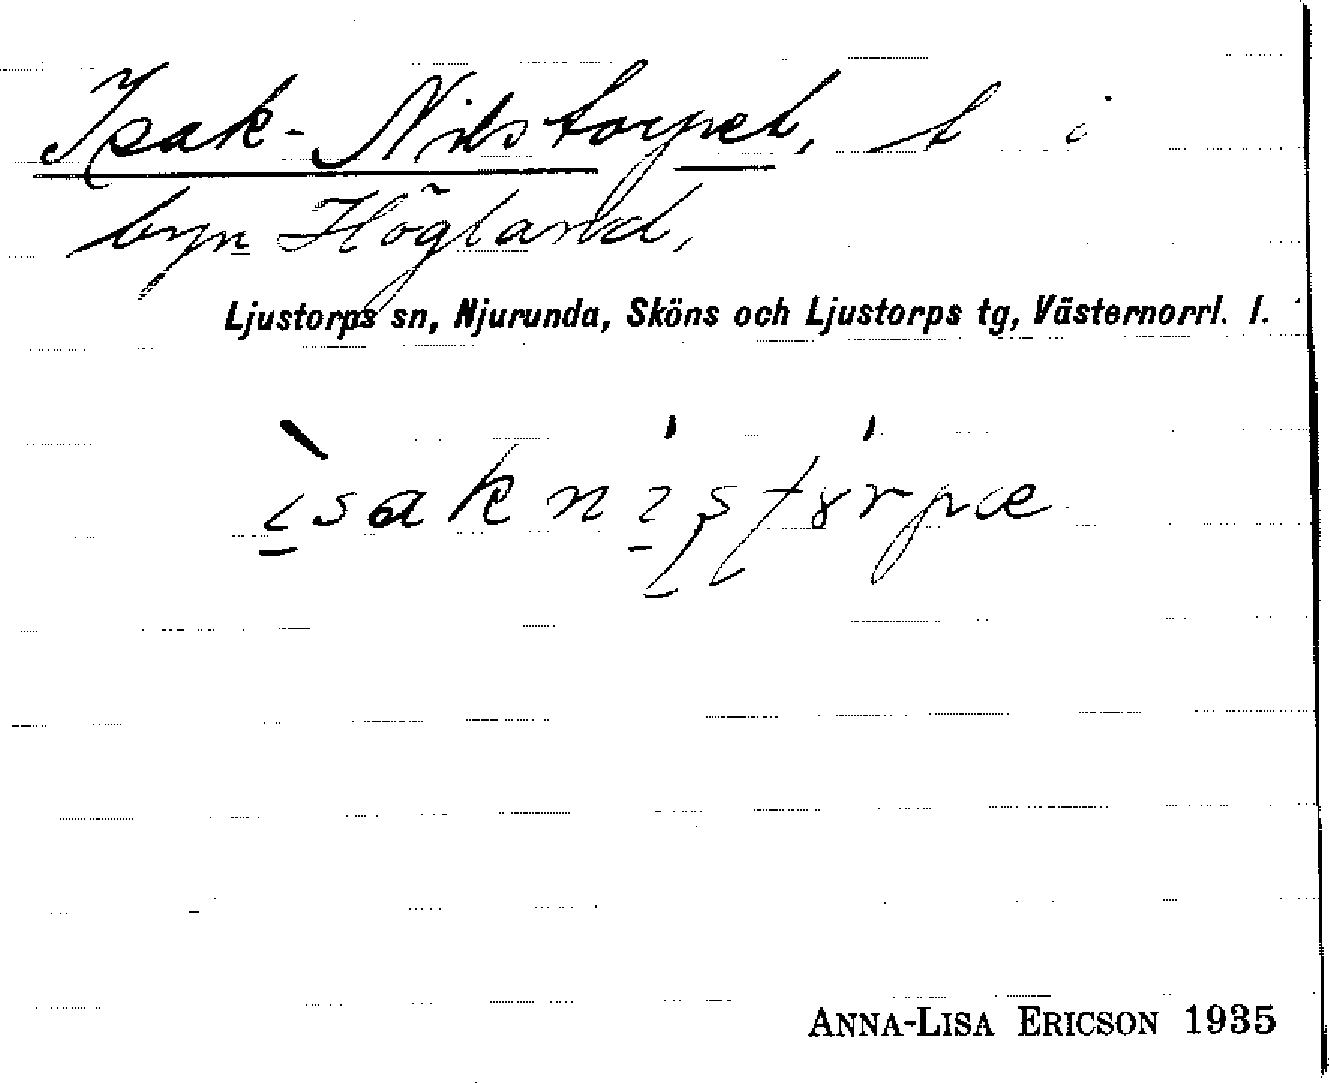 Isak-Nilstorpet, t i
byn Högland,
Ljustorps sn, Njurunda, Sköns och Ljustorps tg, Västernorrl. l.
ANNA-LISA ERICSON 1935